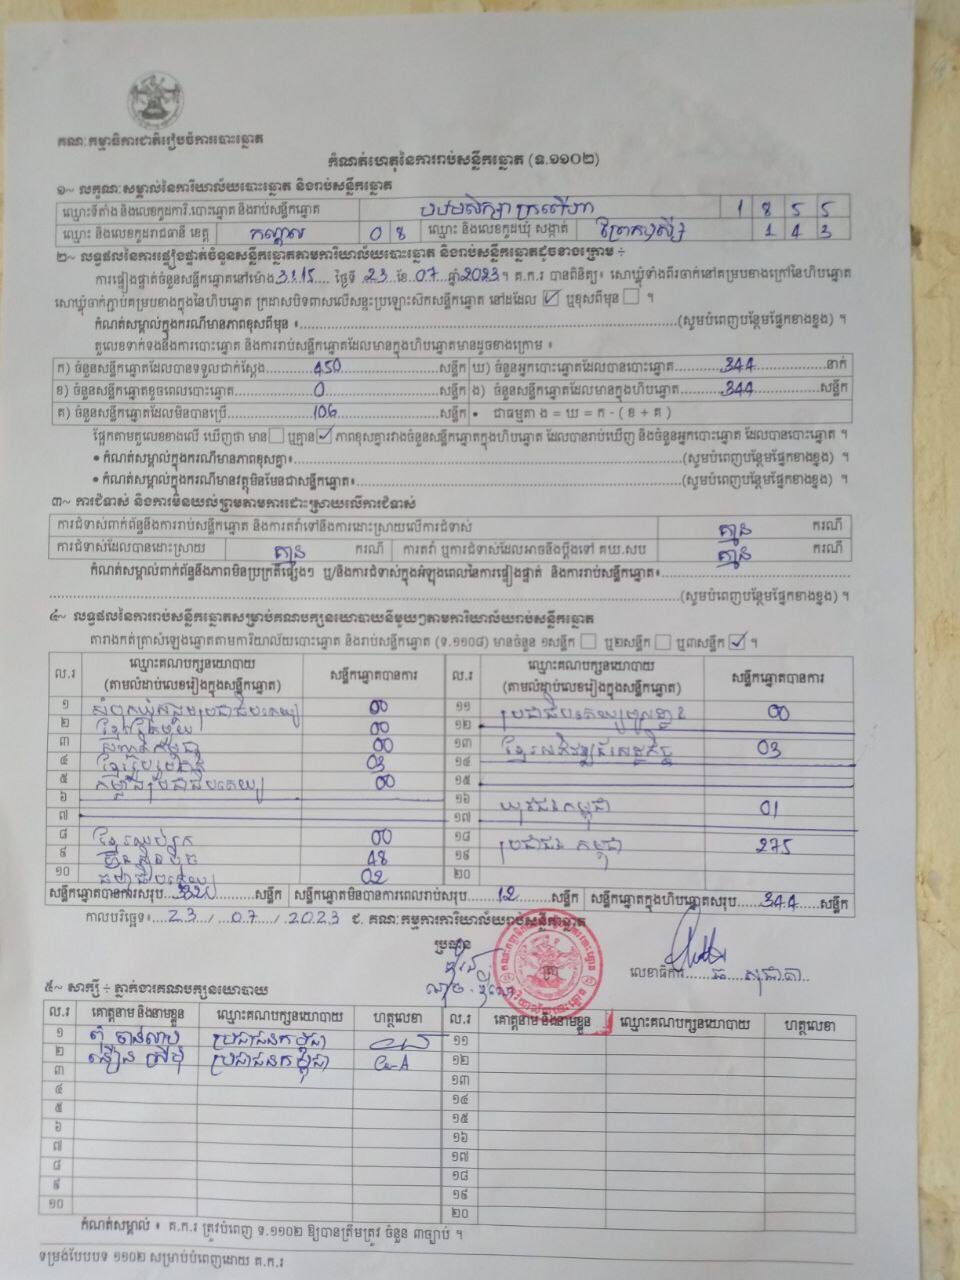 គណៈកម្មាធិការជាតិរៀបចំការបោះឆ្នោត
កំណត់ហេតុនៃការរាប់សន្លឹកឆ្នោត (ទ.១១០២)
១~ លក្ខណៈសម្គាល់នៃការិយាល័យបោះឆ្នោត និងរាប់សន្លឹកឆ្នោត
ឈ្មោះទីតាំង និងលេខកូដការិ.បោះឆ្នោត និងរាប់សន្លឹកឆ្នោត 1 8 5 5
ឈ្មោះ និងលេខកូដរាជធានី ខេត្ត កណ្តាល 0 8 ឈ្មោះ និងលេខកូដឃុំ សង្កាត់ 1 4 3
២~ លទ្ធផលនៃការផ្ទៀងផ្ទាត់ចំនួនសន្លឹកឆ្នោតតាមការិយាល័យបោះឆ្នោត និងរាប់សន្លឹកឆ្នោតដូចខាងក្រោម ÷
ការផ្ទៀងផ្ទាត់ចំនួនសន្លឹកឆ្នោតនៅម៉ោង 3:15 ថ្ងៃទី 23 ខែ 07 ឆ្នាំ 2023។ គ.ក.រ បានពិនិត្យ៖ សោឃ្លុំទាំងពីរចាក់នៅគម្របខាងក្រៅនៃហិបឆ្នោត
សោឃ្លុំចាក់ភ្ជាប់គម្របខាងក្នុងនៃហិបឆ្នោត ក្រដាសបិទពាសលើសន្ទះប្រឡោះស៊កសន្លឹកឆ្នោត នៅដដែល ☑ ឬខុសពីមុន ☐ ។
កំណត់សម្គាល់ក្នុងករណីមានភាពខុសពីមុន ៖ (សូមបំពេញបន្ថែមផ្នែកខាងខ្នង) ។
តួលេខទាក់ទងនឹងការបោះឆ្នោត និងការរាប់សន្លឹកឆ្នោតដែលមានក្នុងហិបឆ្នោតមានដូចខាងក្រោម ៖
ក) ចំនួនសន្លឹកឆ្នោតដែលបានទទួលជាក់ស្តែង 450 សន្លឹក ឃ) ចំនួនអ្នកបោះឆ្នោតដែលបានបោះឆ្នោត 344 នាក់
ខ) ចំនួនសន្លឹកឆ្នោតខូចពេលបោះឆ្នោត 0 សន្លឹក ង) ចំនួនសន្លឹកឆ្នោតដែលមានក្នុងហិបឆ្នោត 344 សន្លឹក
គ) ចំនួនសន្លឹកឆ្នោតដែលមិនបានប្រើ 106 សន្លឹក • ជាធម្មតា ង = ឃ = ក - ( ខ + គ )
ផ្អែកតាមតួលេខខាងលើ ឃើញថា មាន ☐ ឬគ្មាន ☑ ភាពខុសគ្នារវាងចំនួនសន្លឹកឆ្នោតក្នុងហិបឆ្នោត ដែលបានរាប់ឃើញ និងចំនួនអ្នកបោះឆ្នោត ដែលបានបោះឆ្នោត ។
• កំណត់សម្គាល់ក្នុងករណីមានភាពខុសគ្នា៖ (សូមបំពេញបន្ថែមផ្នែកខាងខ្នង) ។
• កំណត់សម្គាល់ក្នុងករណីមានវត្ថុមិនមែនជាសន្លឹកឆ្នោត៖ (សូមបំពេញបន្ថែមផ្នែកខាងខ្នង) ។
៣~ ការជំទាស់ និងការមិនយល់ព្រមតាមការដោះស្រាយលើការជំទាស់
ការជំទាស់ពាក់ព័ន្ធនឹងការរាប់សន្លឹកឆ្នោត និងការតវ៉ាទៅនឹងការដោះស្រាយលើការជំទាស់ គ្មាន ករណី
ការជំទាស់ដែលបានដោះស្រាយ គ្មាន ករណី ការតវ៉ា ឬការជំទាស់ដែលអាចនឹងប្តឹងទៅ គឃ.សប គ្មាន ករណី
កំណត់សម្គាល់ពាក់ព័ន្ធនឹងភាពមិនប្រក្រតីផ្សេងៗ ឬ/និងការជំទាស់ក្នុងអំឡុងពេលនៃការផ្ទៀងផ្ទាត់ និងការរាប់សន្លឹកឆ្នោត៖
(សូមបំពេញបន្ថែមផ្នែកខាងខ្នង) ។
៤~ លទ្ធផលនៃការរាប់សន្លឹកឆ្នោតសម្រាប់គណបក្សនយោបាយនីមួយៗតាមការិយាល័យរាប់សន្លឹកឆ្នោត
តារាងកត់ត្រាសំឡេងឆ្នោតតាមការិយាល័យបោះឆ្នោត និងរាប់សន្លឹកឆ្នោត (ទ.១១០៨) មានចំនួន ១សន្លឹក ☐ ឬ២សន្លឹក ☐ ឬ៣សន្លឹក ☑ ។
ល.រ ឈ្មោះគណបក្សនយោបាយ (តាមលំដាប់លេខរៀងក្នុងសន្លឹកឆ្នោត) សន្លឹកឆ្នោតបានការ ល.រ ឈ្មោះគណបក្សនយោបាយ (តាមលំដាប់លេខរៀងក្នុងសន្លឹកឆ្នោត) សន្លឹកឆ្នោតបានការ
១ សំបុកឃ្មុំសង្គមប្រជាធិបតេយ្យ 00 ១១ 00
២ 00 ១២
៣ 00 ១៣ 03
៤ 03 ១៤
៥ កម្លាំងប្រជាធិបតេយ្យ 00 ១៥
៦ ១៦ យុវជនកម្ពុជា 01
៧ ១៧
៨ 00 ១៨ ប្រជាជនកម្ពុជា 275
៩ ហ្វ៊ុនស៊ិនប៉ិច 48 ១៩
១០ 02 ២០
សន្លឹកឆ្នោតបានការសរុប 332 សន្លឹក សន្លឹកឆ្នោតមិនបានការពេលរាប់សរុប 12 សន្លឹក សន្លឹកឆ្នោតក្នុងហិបឆ្នោតសរុប 344 សន្លឹក
កាលបរិច្ឆេទ៖ 23 / 07 / 2023 ជ. គណៈកម្មការការិយាល័យរាប់សន្លឹកឆ្នោត
ប្រធាន
លេខាធិការ
៥~ សាក្សី ÷ ភ្នាក់ងារគណបក្សនយោបាយ
ល.រ គោត្តនាម និងនាមខ្លួន ឈ្មោះគណបក្សនយោបាយ ហត្ថលេខា ល.រ គោត្តនាម និងនាមខ្លួន ឈ្មោះគណបក្សនយោបាយ ហត្ថលេខា
១ ប្រជាជនកម្ពុជា ១១
២ ប្រជាជនកម្ពុជា ១២
៣ ១៣
៤ ១៤
៥ ១៥
៦ ១៦
៧ ១៧
៨ ១៨
៩ ១៩
១០ ២០
កំណត់សម្គាល់ ៖ គ.ក.រ ត្រូវបំពេញ ទ.១១០២ ឱ្យបានត្រឹមត្រូវ ចំនួន ៣ច្បាប់ ។
ទម្រង់បែបបទ ១១០២ សម្រាប់បំពេញដោយ គ.ក.រ